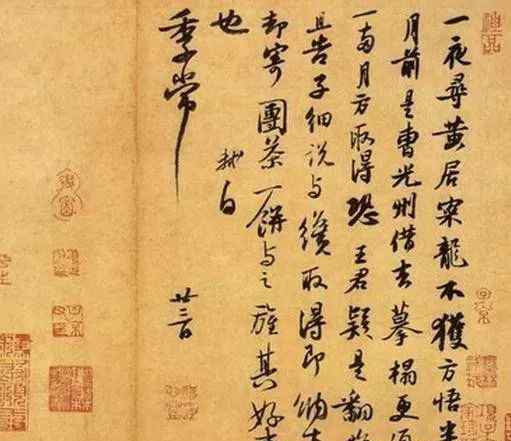 一夜尋黃居寀龍不獲方悟半
月前是曹光州借去摹搨更
一兩月方取得恐王君疑是翻
且告子細說與纔取得即納
却寄團茶一餅與之旌其好
也 軾白
季常
廿三日